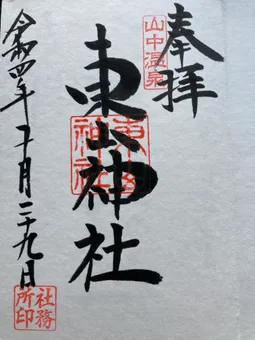 奉拝
山中温泉
東山神社
東山神社
令和四年十月二十九日
社務所印